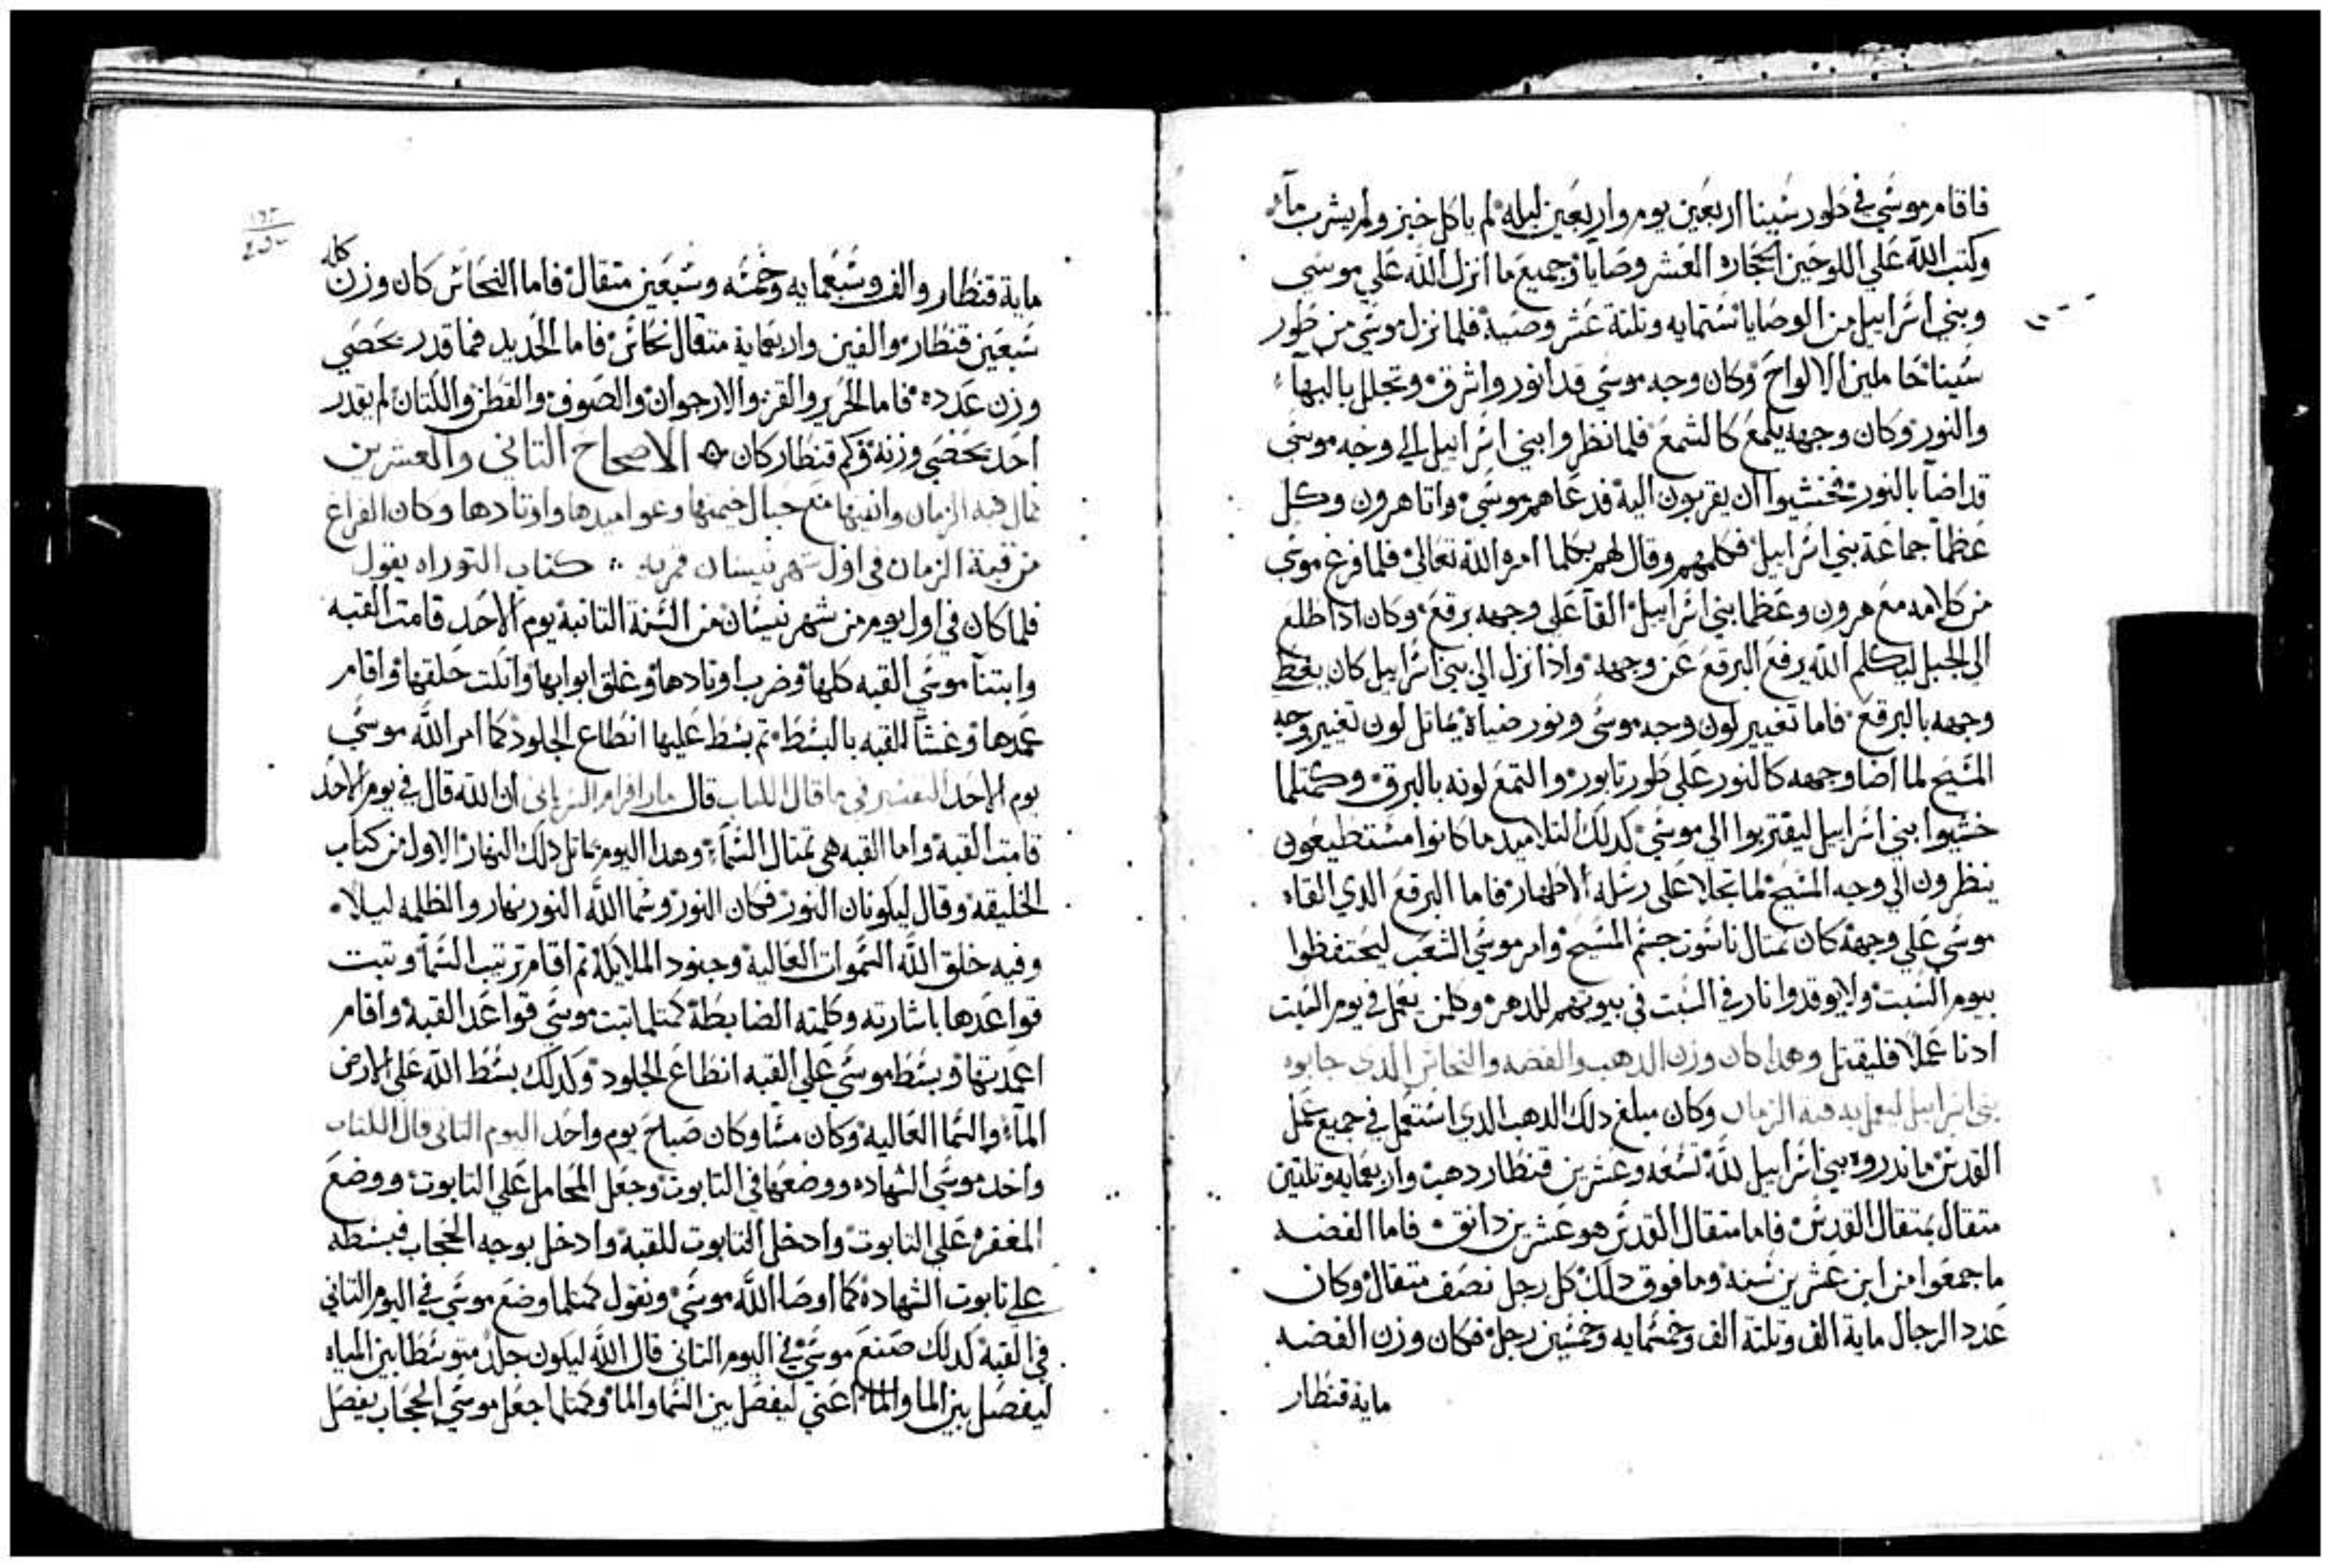 فاقام موسي في طور سينا اربعين يوم واربعين ليله لم ياكل خبز ولم يشرب مآء
وكتب الله علي اللوحين الحجاره العشر وصايا وجميع ما انزل الله علي موسي
وبني اسراييل من الوصايا ستمايه وتلتة عشر وصيه فلما نزل موسي من طور
سينا حاملين الالواح وكان وجه موسي قد انور واشرق وتجلل بالبهآء
والنور وكان وجهه يلمع كالشمع فلما نظروا بني اسراييل الي وجه موسي
قد اضآ بالنور فخشيوا ان يقربون اليه فدعاهم موسي واتا هرون وكل
عظمآ جماعة بني اسراييل فكلمهم وقال لهم بكلما امره الله تعالي فلما فرغ موسي
من كلامه مع هرون وعظما بني اسراييل القآ علي وجهه برقع وكان ادا طلع
الي الجبل ليكلم الله يرفع البرقع عن وجهه واذا نزل الي بني اسراييل كان يغطي
وجهه بالبرقع فاما تغيير لون وجه موسي ونور ضياه يماتل لون تغيير وجه
المسيح لما اضا وجهه كالنور علي طور تابور والتمع لونه بالبرق وكمتلما
خشيوا بني اسراييل ليقتربوا الي موسي كدلك التلاميد ما كانوا مستطيعون
ينظرون الي وجه المسيح لما تجلا علي رسله الاطهار فاما البرقع الدي القاه
موسي علي وجهه كان تمتال ناسوت جسم المسيح وامر موسي الشعب ليحتفظوا
بيوم السبت ولا يوقدوا نار في السبت في بيوتهم للدهر وكلمن يعمل في يوم السبت
ادنا عملا فليقتل وهدا كان وزن الدهب والفضه والنحاس الدي جابوه
بني اسراييل ليعمل به قبة الزمان وكان مبلغ دلك الدهب الدي استعمل في جميع عمل
القدس ما ندروه بني اسراييل لله تسعه وعشرين قنطار دهب واربعمايه وتلتين
متقال بمتقال القدس فاما متقال القدس هو عشرين دانق فاما الفضه
ما جمعوا من ابن عشرين سنه وما فوق دلك كل رجل نصف متقال وكان
عدد الرجال ماية الف وتلتة الف وخمسمايه وخمسين رجل فكان وزن الفضه
ماية قنطار
ماية قنطار والف وسبعمايه وخمسه وسبعين متقال فاما النحاس كان وزن كله
سبعين قنطار والفين واربعماية متقال نحاس فاما الحديد فما قدر يحصي
وزن عدده فاما الحرير والقز والارجوان والصوف والقطن والكتان لم يقدر
احد يحصي وزنه وكم قنطار كان الاصحاح التاني والعشرين
فيه الزمان مع حبال خيمتها وعواميدها واوتادها وكان الفراغ
من قبة الزمان في اول شهر نيسان قمريه كتاب التوراه يقول
فلما كان في اول يوم من شهر نيسان من السنة التانية يوم الاحد قامت القبه
وابتنآ موسي القبه كلها وضرب اوتادها وغلق ابوابها حلقها واقام
عمدها وغشآ القبه بالبسط تم بسط عليها انطاع الجلود كما امر الله موسي
يوم الاحد التفسير في ما قال الكتاب قال مار افرام السرياني ان الله قال في يوم الاحد
قامت القبة واما القبه هي تمتال السمآء وهدا اليوم يماتل دلك النهار الاول من كتاب
الخليقه وقال ليكونان النور فكان النور وسما الله النور نهار والظلمه ليلا
وفيه خلق الله السموات العالية وجنود الملايكة تم اقام ترتيب السمآ وتبت
قواعدها باشارته وكلمته الضابطة كمتلما تبت موسي قواعد القبه واقام
اعمدتها وبسط موسي علي القبه انطاع الجلود وكدلك بسط الله علي الارض
المآء والسما العاليه وكان مسا وكان صباح يوم واحد اليوم التاني قال الكتاب
واخد موسي الشهاده ووضعها في التابوت وجعل المحامل علي التابوت ووضع
المغفره علي التابوت وادخل التابوت للقبة وادخل بوجه الحجاب فبسطه
علي تابوت الشهاده كما اوصا الله موسي ونقول كمتلما وضع موسي في اليوم التاني
في القبه كدلك صنع موسي في اليوم التاني قال الله ليكون جلد متوسطا بين المياه
ليفصل بين الما والما اعني ليفصل بين السما والما وكمتلما جعل موسي الحجاب يفصل